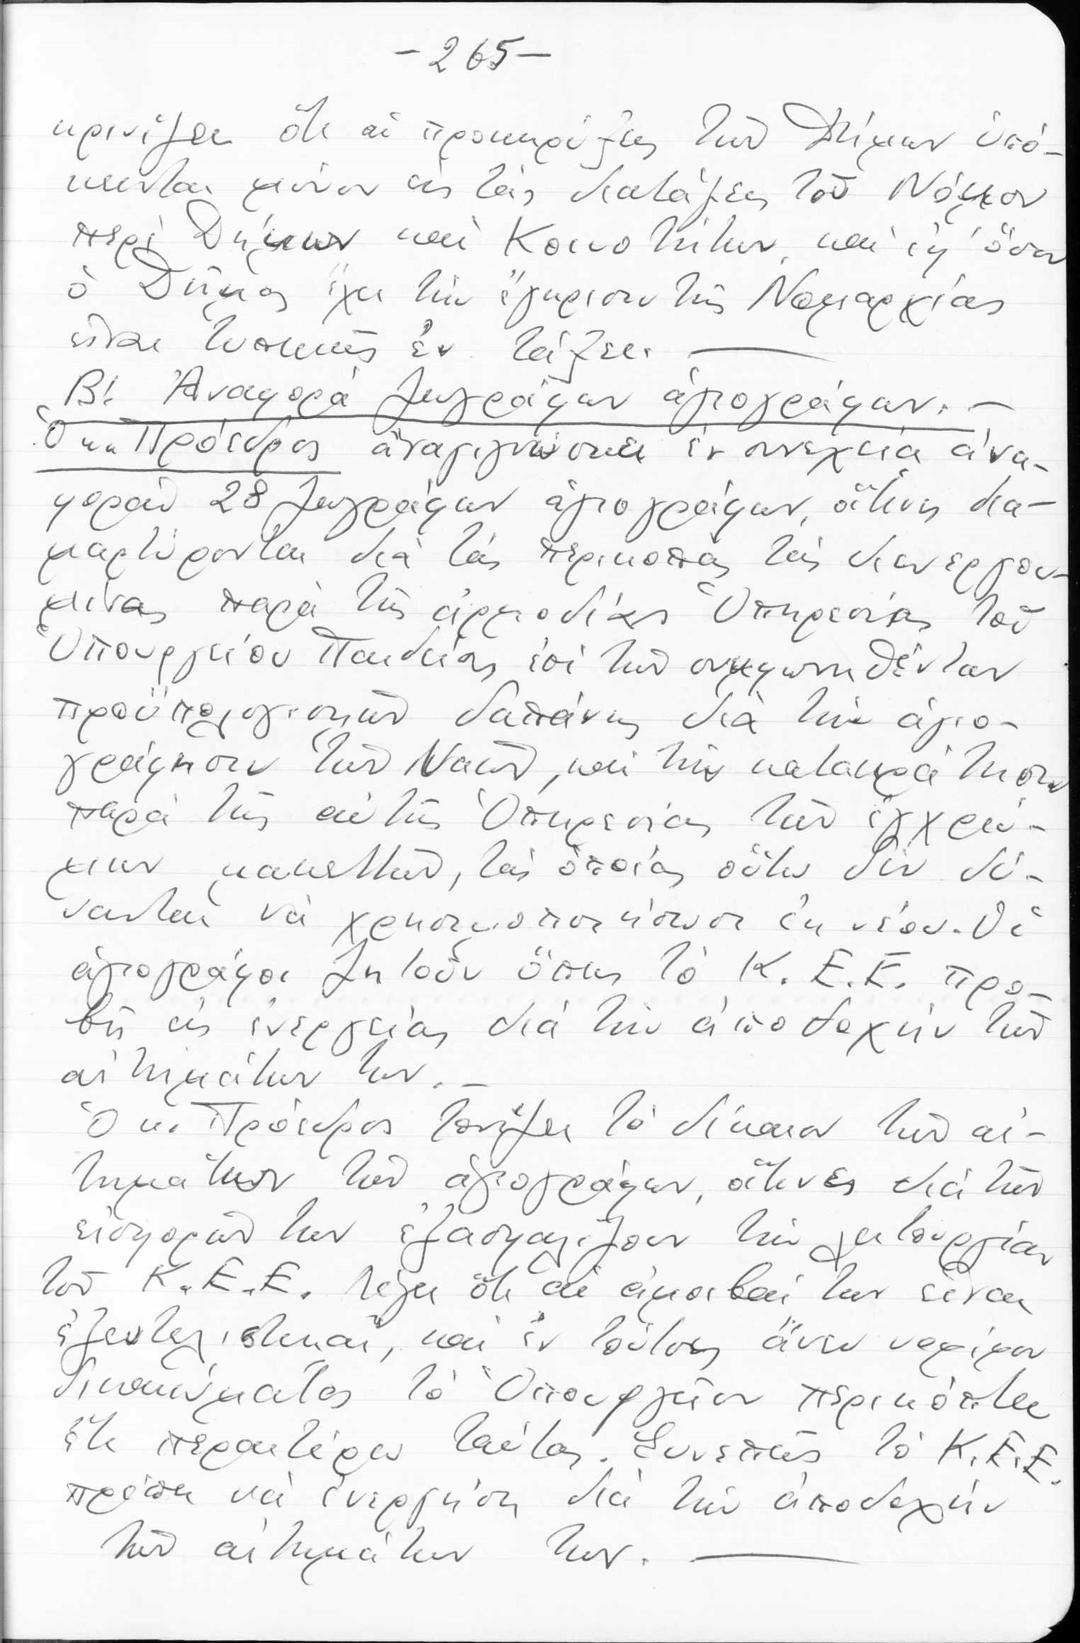 -265-
κρινίζει ὅτι αἱ προκηρύξεις τῶν Δήμων ὑπό-
κεινται μόνον εἰς τὰς διατάξεις τοῦ Νόμου
περὶ Δήμων καὶ Κοινοτήτων, καὶ ἐφ' ὅσον
ὁ Δῆμος ἔχει τὴν ἔγκρισιν τῆς Νομαρχίας
εἶναι τυπικῶς ἐν τάξει.
Β'. Ἀναφορὰ ζωγράφων ἁγιογράφων.-
Ὁ κ. Πρόεδρος ἀναγιγνώσκει ἐν συνεχείᾳ ἀνα-
φορὰν 28 ζωγράφων ἁγιογράφων, οἵτινες δια-
μαρτύρονται διὰ τὰς περικοπὰς τὰς διενεργου-
μένας παρὰ τῆς ἁρμοδίας Ὑπηρεσίας τοῦ
Ὑπουργείου Παιδείας ἐπὶ τῶν συμφωνηθέντων
προϋπολογισμῶν δαπάνης διὰ τὴν ἁγιο-
γράφησιν τῶν Ναῶν, καὶ τὴν κατακράτησιν
παρὰ τῆς αὐτῆς Ὑπηρεσίας τῶν ἐγχρώ-
μων μακεττῶν, τὰς ὁποίας οὕτω δὲν δύ-
νανται νὰ χρησιμοποιήσωσι ἐκ νέου. Οἱ
ἁγιογράφοι ζητοῦν ὅπως τὸ Κ.Ε.Ε. προ-
βῇ εἰς ἐνεργείας διὰ τὴν ἀποδοχὴν τῶν
αἰτημάτων των.-
Ὁ κ. Πρόεδρος τονίζει τὸ δίκαιον τῶν αἰ-
τημάτων τῶν ἁγιογράφων, οἵτινες διὰ τῶν
εἰσφορῶν των ἐξασφαλίζουν τὴν λειτουργίαν
τοῦ Κ.Ε.Ε. Λέγει ὅτι αἱ ἀμοιβαί των εἶναι
ἐξευτελιστικαί, καὶ ἐν τούτοις ἄνευ νομίμου
δικαιώματος τὸ Ὑπουργεῖον περικόπτει
ἔτι περαιτέρω ταύτας. Συνεπῶς τὸ Κ.Ε.Ε.
πρέπει νὰ ἐνεργήσῃ διὰ τὴν ἀποδοχὴν
τῶν αἰτημάτων των.